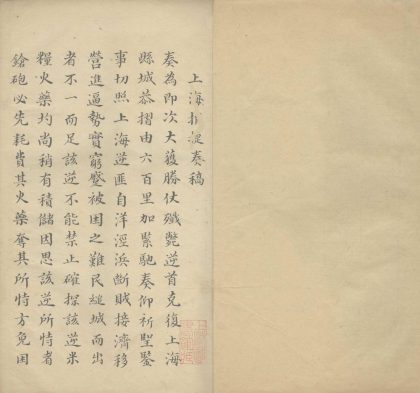 上海捷奏稿
奏為即次大獲勝仗殲斃逆首克復上海
縣城恭摺由六百里加緊馳奏仰祈聖鑒
事切照上海逆匪自洋涇浜斷賊接濟移
營進逼勢實窮蹙被困之難民縋城而出
者不一而足該逆不能禁止確探該逆米
糧火藥均尚稍有積儲因思該逆所恃者
鎗砲必先耗費其火藥奪其所恃方免困